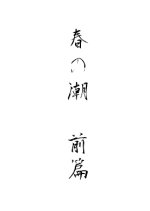 春の潮　前篇